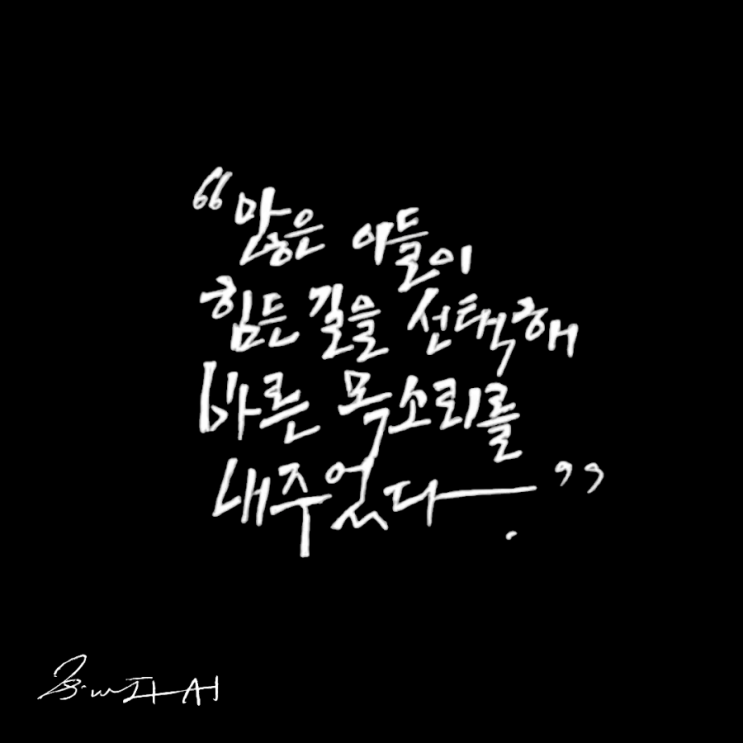 “많은 이들이
힘든 길을 선택해
바른 목소리를
내주었다.”